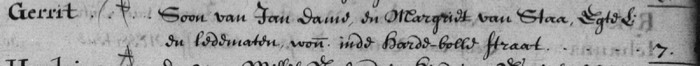 Gerrit Soon van Jan Dame, en Margriet van Staa, Egte L:
en ledematen, won̄. inde Harde-bolle straat. 7.